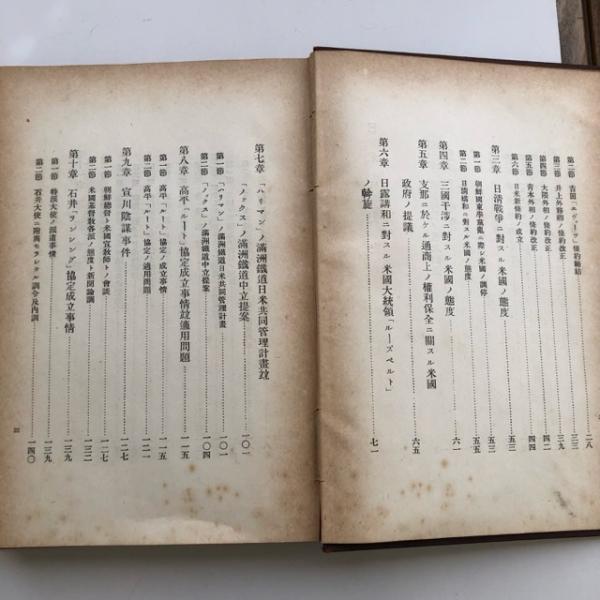 第二節 吉田「エヴァーツ」條約締結……二八
第三節 井上外務卿ノ條約改正……三三
第四節 大隈外相ノ條約改正……三九
第五節 青木外相ノ條約改正……四二
第六節 日米新條約ノ成立……四四
第三章 日清戰爭ニ對スル米國ノ態度……五三
第一節 朝鮮國東學黨亂ニ際シ米國ノ調停……五三
第二節 日清媾和ニ對スル米國ノ態度……五五
第四章 三國干渉ニ對スル米國ノ態度……六一
第五章 支那ニ於ケル通商上ノ權利保全ニ關スル米國
政府ノ提議……六五
第六章 日露講和ニ對スル米國大統領「ルーズベルト」
ノ斡旋……七一
第七章 「ハリマン」ノ滿洲鐵道日米共同管理計畫竝
「ノックス」ノ滿洲鐵道中立提案……一〇一
第一節 「ハリマン」ノ滿洲鐵道日米共同管理計畫……一〇一
第二節 「ノックス」ノ滿洲鐵道中立提案……一〇四
第八章 高平「ルート」協定成立事情竝適用問題……一一五
第一節 高平「ルート」協定成立事情……一一五
第二節 高平「ルート」協定ノ適用問題……一二〇
第九章 宣川陰謀事件……一二七
第一節 朝鮮總督ト米國宣教師トノ會談……一二七
第二節 米國基督教各派ノ態度ト新聞論調……一三二
第十章 石井「ランシング」協定成立事情……一三九
第一節 特派大使ノ派遣事情……一三九
第二節 石井大使ニ附與セラレタル訓令及内訓……一四〇